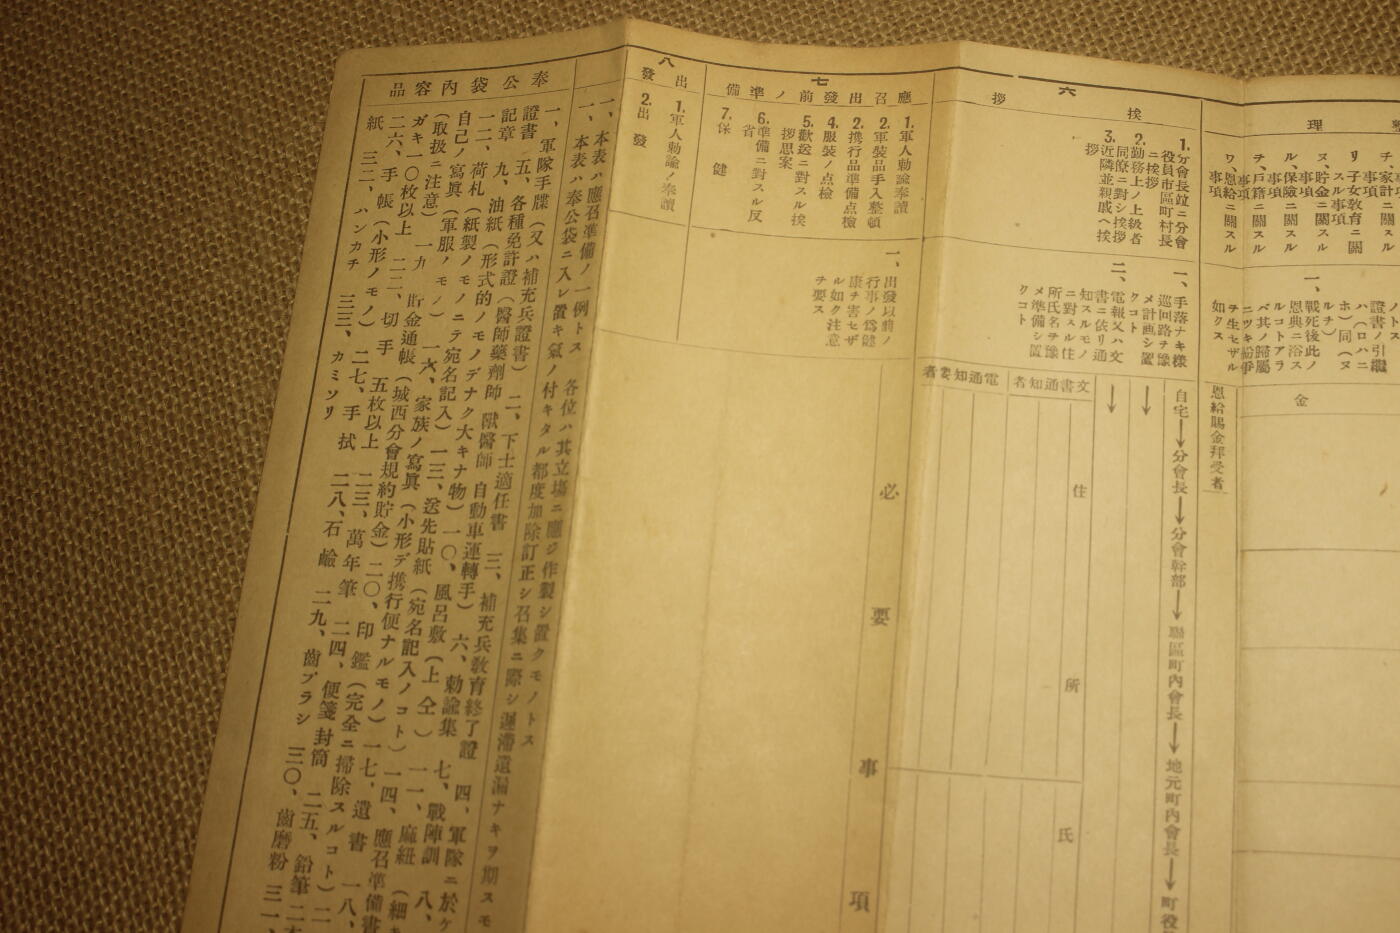 理
チ、家計ニ關スル
事項
リ、子女教育ニ關
スル事項
ヌ、貯金ニ關スル
事項
ル、保險ニ關スル
事項
ヲ、戸籍ニ關スル
事項
ワ、恩給ニ關スル
事項
證書ノ引繼
ハ(ロハニ
ホ)同(ヌ
ルヲ)
一、戰死後此ノ
恩典ニ浴ス
ルコトアラ
バ其ノ歸屬
ニツキ紛爭
ヲ生セザル
如クス
金
恩給賜金拜受者
六
挨
拶
1.分會長竝ニ分會
役員市區町村長
ニ挨拶
2.勤務上ノ上級者
同僚ニ對シ挨拶
3.近隣並親戚ヘ挨
拶
一、手落ナキ樣
巡回路ヲ豫
メ計画シ置
クコト
二、電報又ハ文
書ニ依リ通
知スルモノ
ニ對スル住
所氏名ヲ豫
メ準備シ置
クコト
自宅→分會長→分會幹部→聯區町内會長→地元町内會長→町役
文書通知者
電通知要者
住所
氏
七
應召出發前ノ準備
1.軍人勅諭奉讀
2.軍裝品手入整頓
2.携行品準備点檢
4.服裝ノ点檢
5.歡送ニ對スル挨
拶思案
6.準備ニ對スル反
省
7.保健
一、出發以前ノ
行事ノ爲健
康ヲ害セザ
ル如ク注意
ヲ要ス
必要事項
八
出發
1.軍人勅諭ノ奉讀
2.出發
一、本表ハ應召準備ノ一例トス 各位ハ其立場ニ應ジ作製シ置クモノトス
一、本表ハ奉公袋ニ入レ置キ氣ノ付キタル都度加除訂正シ召集ニ際シ遲滯遺漏ナキヲ期スモ
奉公袋内容品
一、軍隊手牒(又ハ補充兵證書) 二、下士適任書 三、補充兵教育終了證 四、軍隊ニ於ケ
證書 五、各種免許證(醫師藥劑師 獸醫師 自動車運轉手) 六、勅諭集 七、戰陣訓 八、
記章 九、油紙(形式的ノモノデナク大キナ物) 一〇、風呂敷(上仝) 一一、麻紐(細キ
一二、荷札(紙製ノモノニテ宛名記入) 一三、送先貼紙(宛名記入ノコト) 一四、應召準備書
自己ノ寫眞(軍服ノモノ) 一六、家族ノ寫眞(小形デ携行便ナルモノ) 一七、遺書 一八、
(取扱ニ注意) 一九、貯金通帳(城西分會規約貯金) 二〇、印鑑(完全ニ掃除スルコト) 二
ガキ一〇枚以上 二二、切手 五枚以上 二三、萬年筆 二四、便箋封筒 二五、鉛筆
二六、手帳(小形ノモノ) 二七、手拭 二八、石鹼 二九、齒ブラシ 三〇、齒磨粉 三一、
紙 三二、ハンカチ 三三、カミソリ